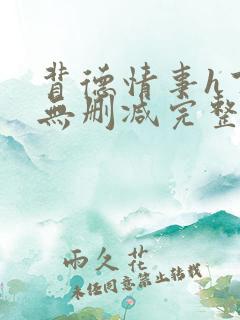 背德情事h
無删减完整
雨久花
未经同意禁止转载